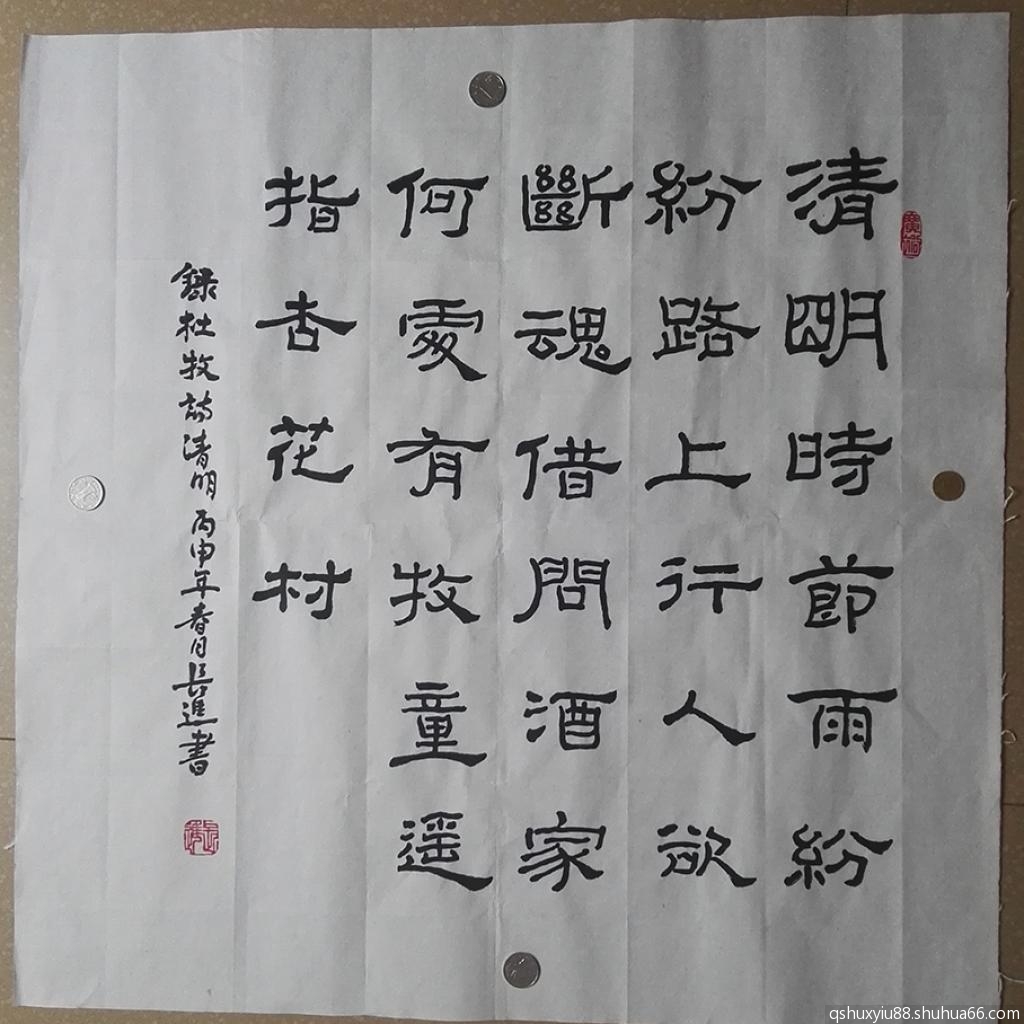 清明時節雨紛
紛路上行人欲
斷魂借問酒家
何處有牧童遥
指杏花村
錄杜牧詩清明 丙申年春月長進書
qshuxyiu88.shuhua66.com